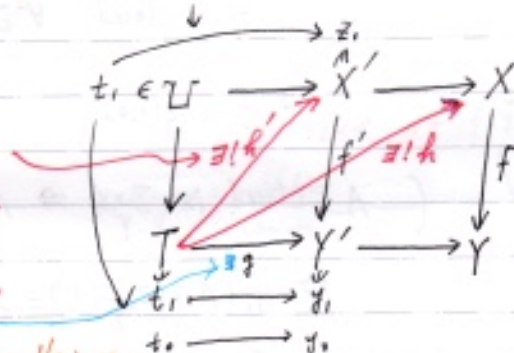 z₁
t₁ ∈ U X' X
∃!h' f' ∃!h f
T g Y' Y
t₁ y₁
t₀ y₀